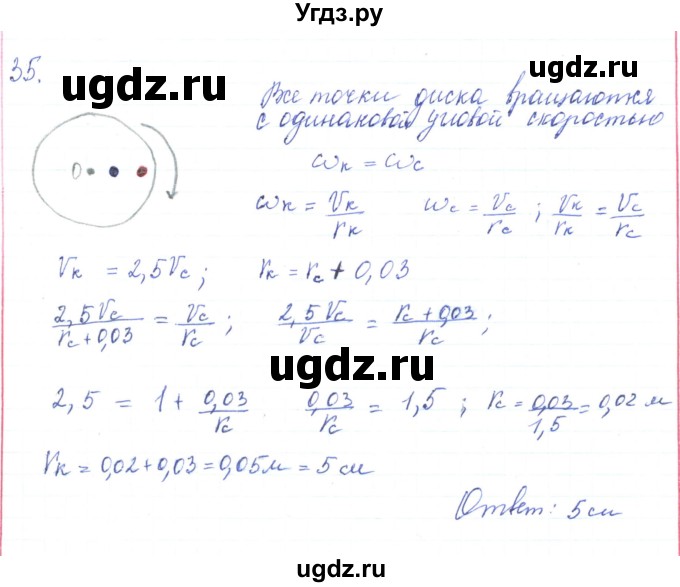 Угдз.ру
35.
ugdz.ru
ugdz.ru
Все точки диска вращаются
с одинаковой угловой скоростью
0
ωк = ωс
ωк = Vк/rк   ωс = Vс/rс ; Vк/rк = Vс/rс
Vк = 2,5Vс ;   rк = rс + 0,03
2,5Vс/rс+0,03 = Vс/rс ;   2,5Vс/Vс = rс+0,03/rс ;
ugdz.ru
ugdz.ru
2,5 = 1 + 0,03/rс   0,03/rс = 1,5 ; rс = 0,03/1,5 = 0,02 м
rк = 0,02+0,03 = 0,05м = 5 см
ugdz.ru
Ответ: 5 см
ugdz.ru